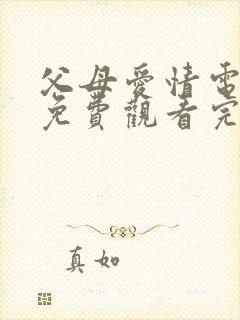 父母愛情電
免費觀看完
真如